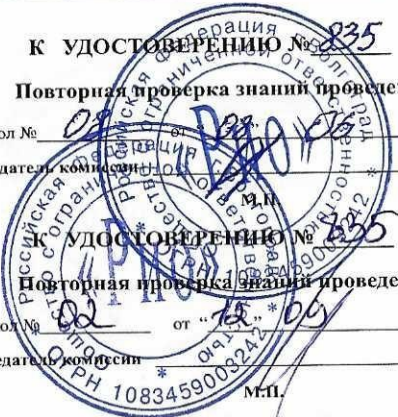 К УДОСТОВЕРЕНИЮ № 835
Повторная проверка знаний проведе
ол № 02 от " "
едатель комиссии
М.П.
К УДОСТОВЕРЕНИЮ № 835
Повторная проверка знаний проведе
ол № 02 от "12" 09
едатель комиссии
М.П.
Российская Федерация г. Волгоград
Общество с ограниченной ответственностью
«РИО»
ОГРН 1083459003242